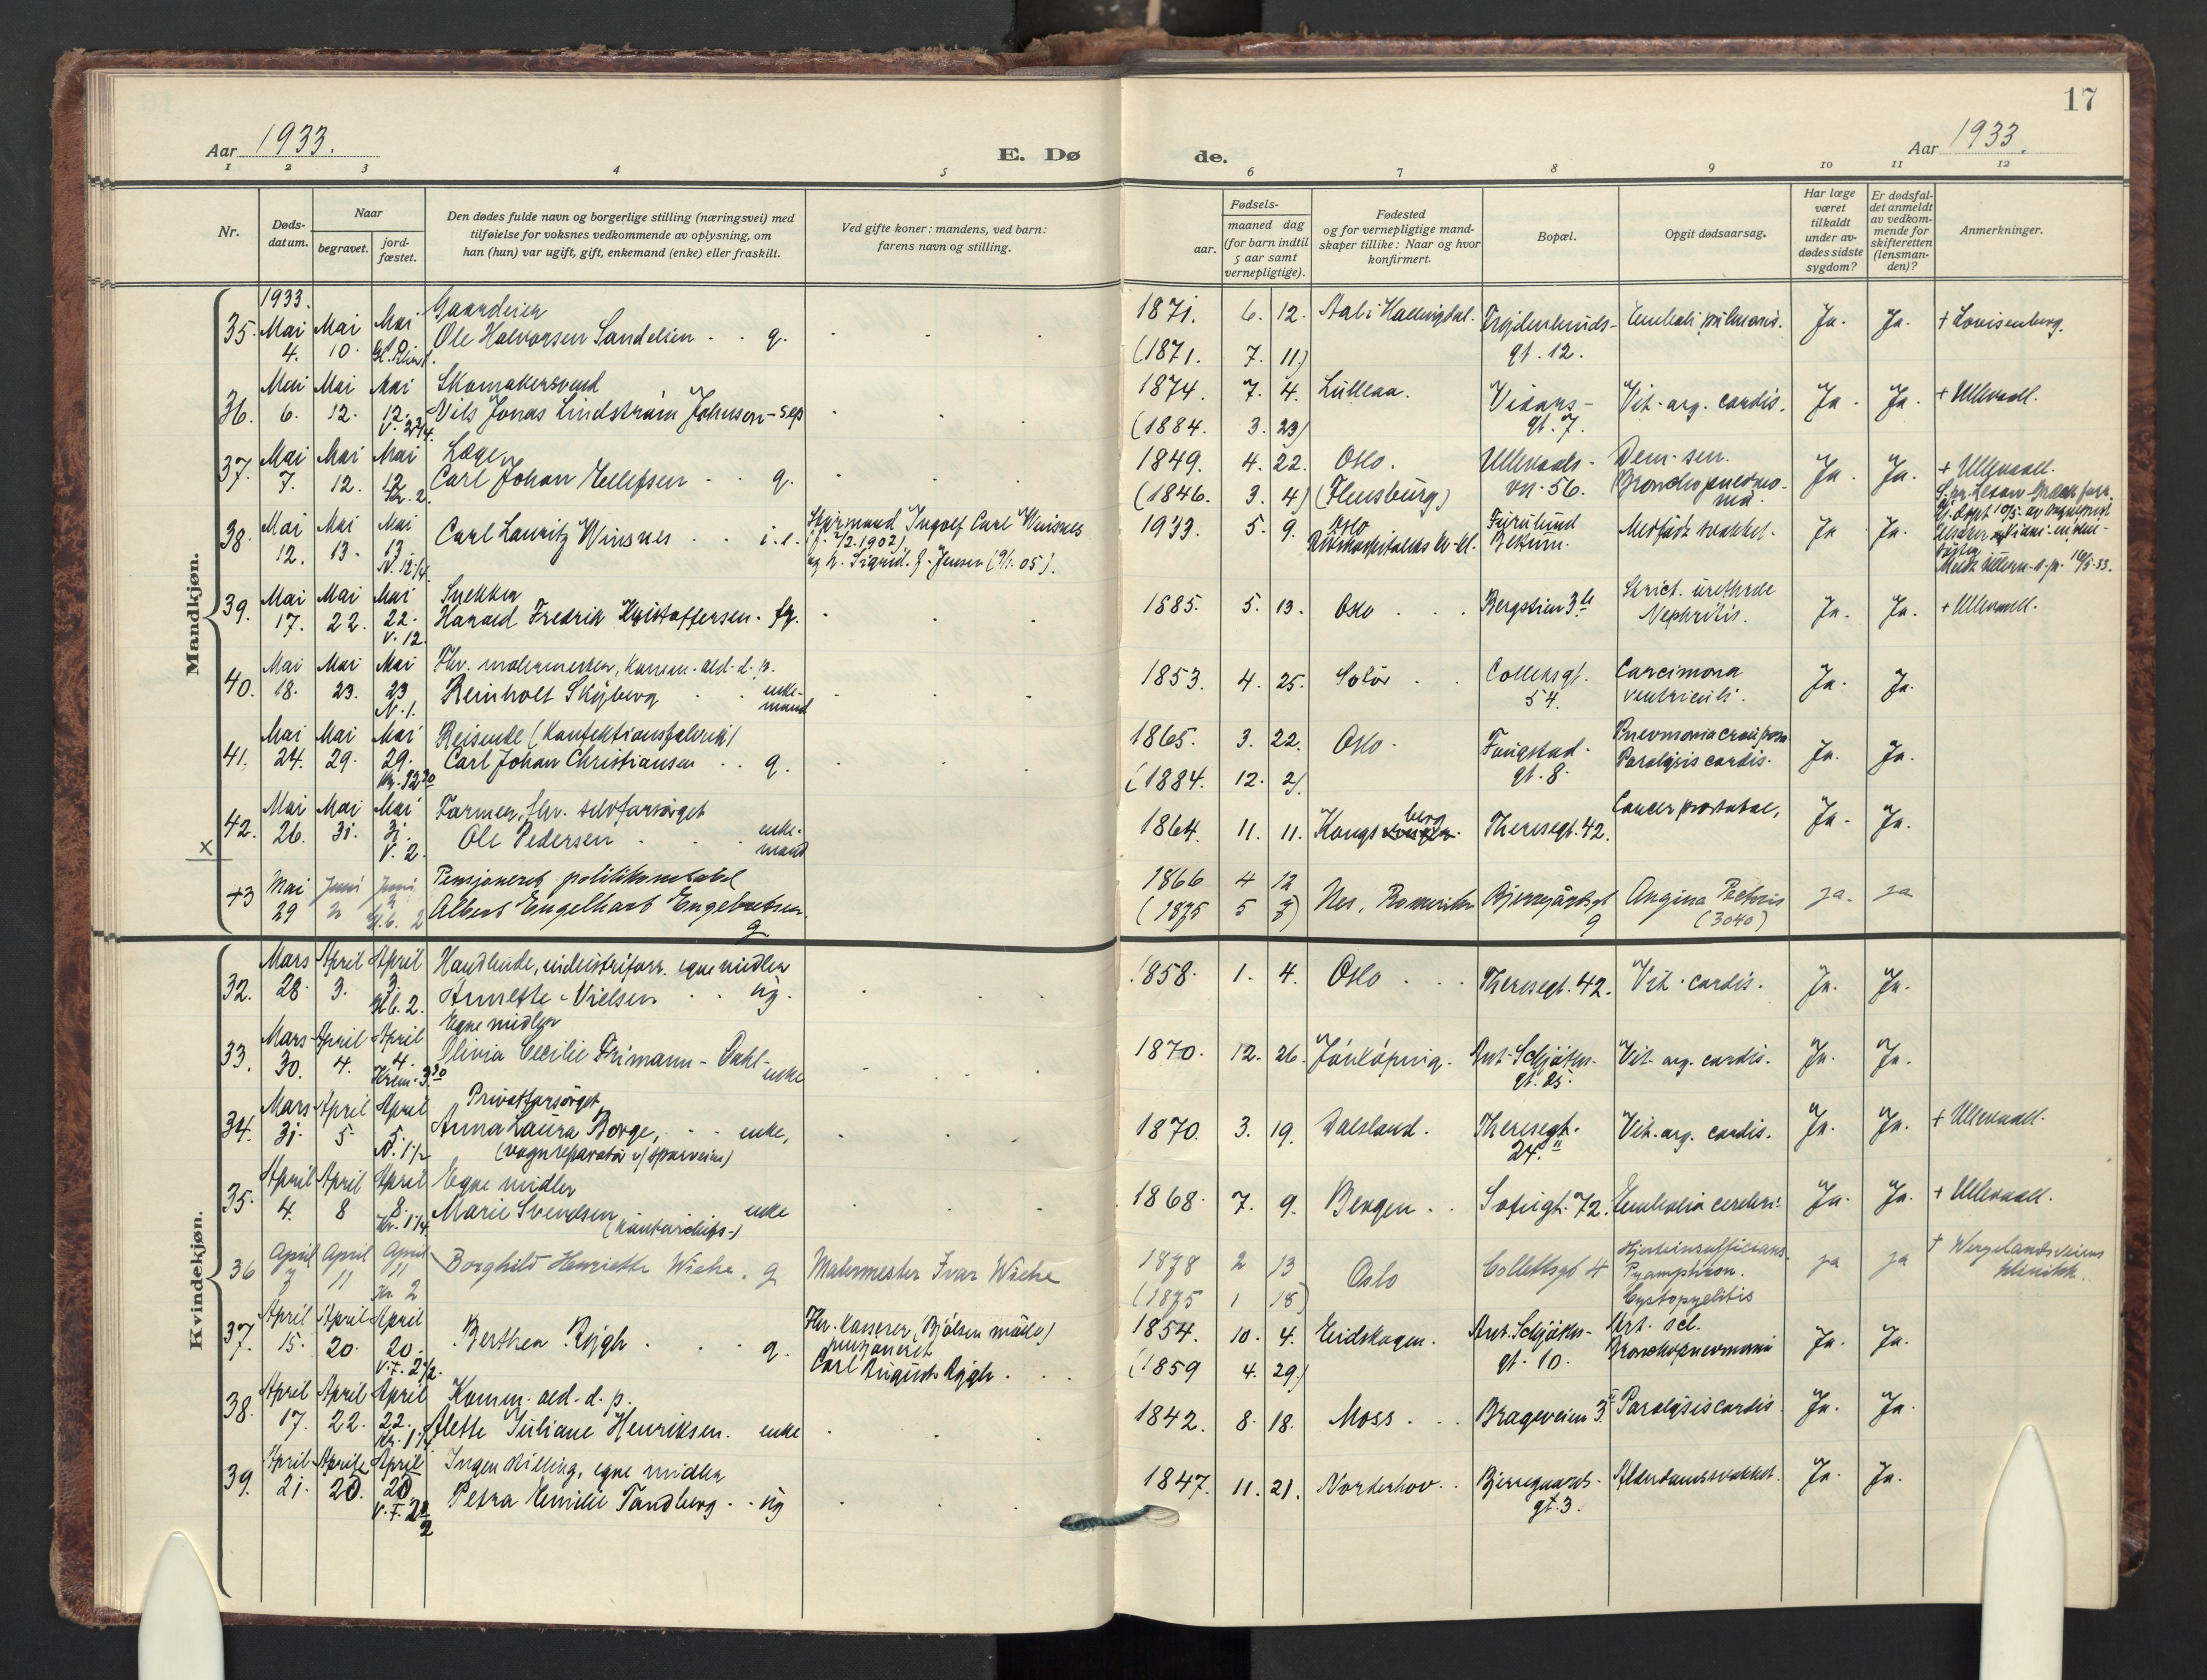 17
Aar 1933.
E. Dø
de.
Aar 1933.
1 2 3 4 5 6 7 8 9 10 11 12
Nr.
Døds-
datum.
Naar
begravet.
jord-
fæstet.
Den dødes fulde navn og borgerlige stilling (næringsvei) med
tilføielse for voksnes vedkommende av oplysning, om
han (hun) var ugift, gift, enkemand (enke) eller fraskilt.
Ved gifte koner: mandens, ved barn:
farens navn og stilling.
Fødsels-
aar.
maaned dag
(for barn indtil
5 aar samt
vernepligtige).
Fødested
og for vernepligtige mand-
skaper tillike: Naar og hvor
konfirmert.
Bopæl.
Opgit dødsaarsag.
Har læge
været
tilkaldt
under av-
dødes sidste
sygdom?
Er dødsfal-
det anmeldt
av vedkom-
mende for
skifteretten
(lensman-
den)?
Anmerkninger.
Mandkjøn.
1933.
35. Mai 4. Mai 10. Mai
Gaardeier
Ole Halvorsen Sandelien . . g.
1871. 6. 12. Aal i Hallingdal.
(1871. 7. 11)
gt. 12.
Emboli pulmonis. Ja. Ja. + Lovisenberg.
36. Mai 6. Mai 12. Mai 12.
Skomakersvend
Nils Jonas Lindstrøm Johnsen - sep
1874. 7. 4. Lulleaa.
(1884. 3. 23)
Vidars-
gt. 7.
Vit. org. cordis. Ja. Ja. + Ullevaall.
37. Mai 7. Mai 12. Mai 12
Læge
Carl Johan Ellefsen . . g.
1849. 4. 22. Oslo.
(1846. 3. 4) (Flensburg)
Ullevaals-
vn. 56.
Dem. sen.
Bronchopneumo-
nia
Ja. Ja. + Ullevaall.
38. Mai 12. Mai 13. Mai 13
Carl Lauritz Winsnes . . i.e.
Styrmand Ingolf Carl Winsnes
(f. 7/2.1902)
og h. Sigrid. f. Jensen (9/1.05).
1933. 5. 9. Oslo
Furulund
Bærum.
Medfødt svakhet. Ja Ja.
39. Mai 17. Mai 22. Mai 22. V. 12.
Snekker
Harald Fredrik Kristoffersen. fg.
1885. 5. 13. Oslo . . . Bergstien 3
Strict. urethrae
Nephritis.
Ja. Ja. + Ullevaall.
40. Mai 18. Mai 23. Mai 23 N. 1.
Fhv. malermester, Komm. ald. d. p.
Reinholt Skyberg . . enke-
mand
1853. 4. 25. Solør . . Collettsgt.
54.
Carcimona
ventriculi.
Ja. Ja.
41. Mai 24. Mai 29. Mai 29.
Reisende (Konfektionsfabrik)
Carl Johan Christiansen . . g.
1865. 3. 22. Oslo.
(1884. 12. 2).
Fougstad-
gt. 8.
Pneumonia crouposa
Paralysis cordis.
Ja. Ja.
42. Mai 26. Mai 31. Mai 31. V. 2.
Farmer, fhv. selvforsørget
Ole Pedersen . . . enke-
mand
1864. 11. 11. Kongsberg Theresegt. 42.
Cancer prostatae, Ja. Ja.
x
43 Mai 29 Juni 2 Juni 2
Pensjonert politikonstabel
Albert Engelhart Engebretsen.
g
1866 4 12
(1875 5 7)
Nes, Romerike Bjerregårdsgt
9
Angina Pectoris
(3040)
ja. ja
Kvindekjøn.
32. Mars 28. April 3. April 3.
Handlende, industriforr. egne midler
Annette Nielsen . . ug.
1858. 1. 4. Oslo . . . Theresegt. 42. Vit. cordis. Ja. Ja.
33. Mars 30. April 4. April 4. Krem. 3.30
Egne midler
Olivia Cecilie Frimann-Dahl-
enke
1870. 12. 26. Jønkøping. Ant. Schjøths-
gt. 25.
Vit. org. cordis. Ja. Ja.
34. Mars 31. April 5. April 5. N. 1 1/2
Privatforsørget
Anna Laura Borge, . . enke,
(vognreparatør v/ sporveien)
1870. 3. 19. Dalsland. Theresegt.
24.II
Vit. org. cordis. Ja. Ja. + Ullevaall.
35. April 4. April 8 April 8. Kr. 1 1/4
Egne midler
Marie Svendsen enke
(kontorchefs-)
1868. 7. 9. Bergen . . Sofiegt. 72. Embolia cerebri. Ja. Ja. + Ullevaall.
36 April 7 April 11 April 11 Kr 2
Borghild Henriette Wiche. g Malermester Ivar Wiche
1878 2 13
(1875 1 18)
Oslo Collettsgt 4
Hjerteinsufficians.
Cystopyelitis
ja ja + Wergelandsveiens
klinikk.
37. April 15. April 20. April 20. V.F. 2 1/2.
Berthea Rygh . . . g.
Fhv. kasserer (Bjølsen mølle)
pensjonert
Carl August Rygh . . .
1854. 10. 4. Eidskogen.
(1859 4. 29.)
Ant. Schjøths-
gt. 10.
Art. scl.
Bronchopneumonia
Ja. Ja.
38. April 17. April 22. April 22. Kr. 1 1/4
Komm. ald. d. p.
Alette Juliane Henriksen. enke
1842. 8. 18. Moss . . Brageveien 3. Paralysis cordis. Ja. Ja.
39. April 21. April 20. April 20 V.F.
Ingen stilling, egne midler
Petra Emilie Tandberg . . ug
1847. 11. 21. Norderhov . . Bjerregaards-
gt. 3.
Alderdomssvakhet. Ja. Ja.